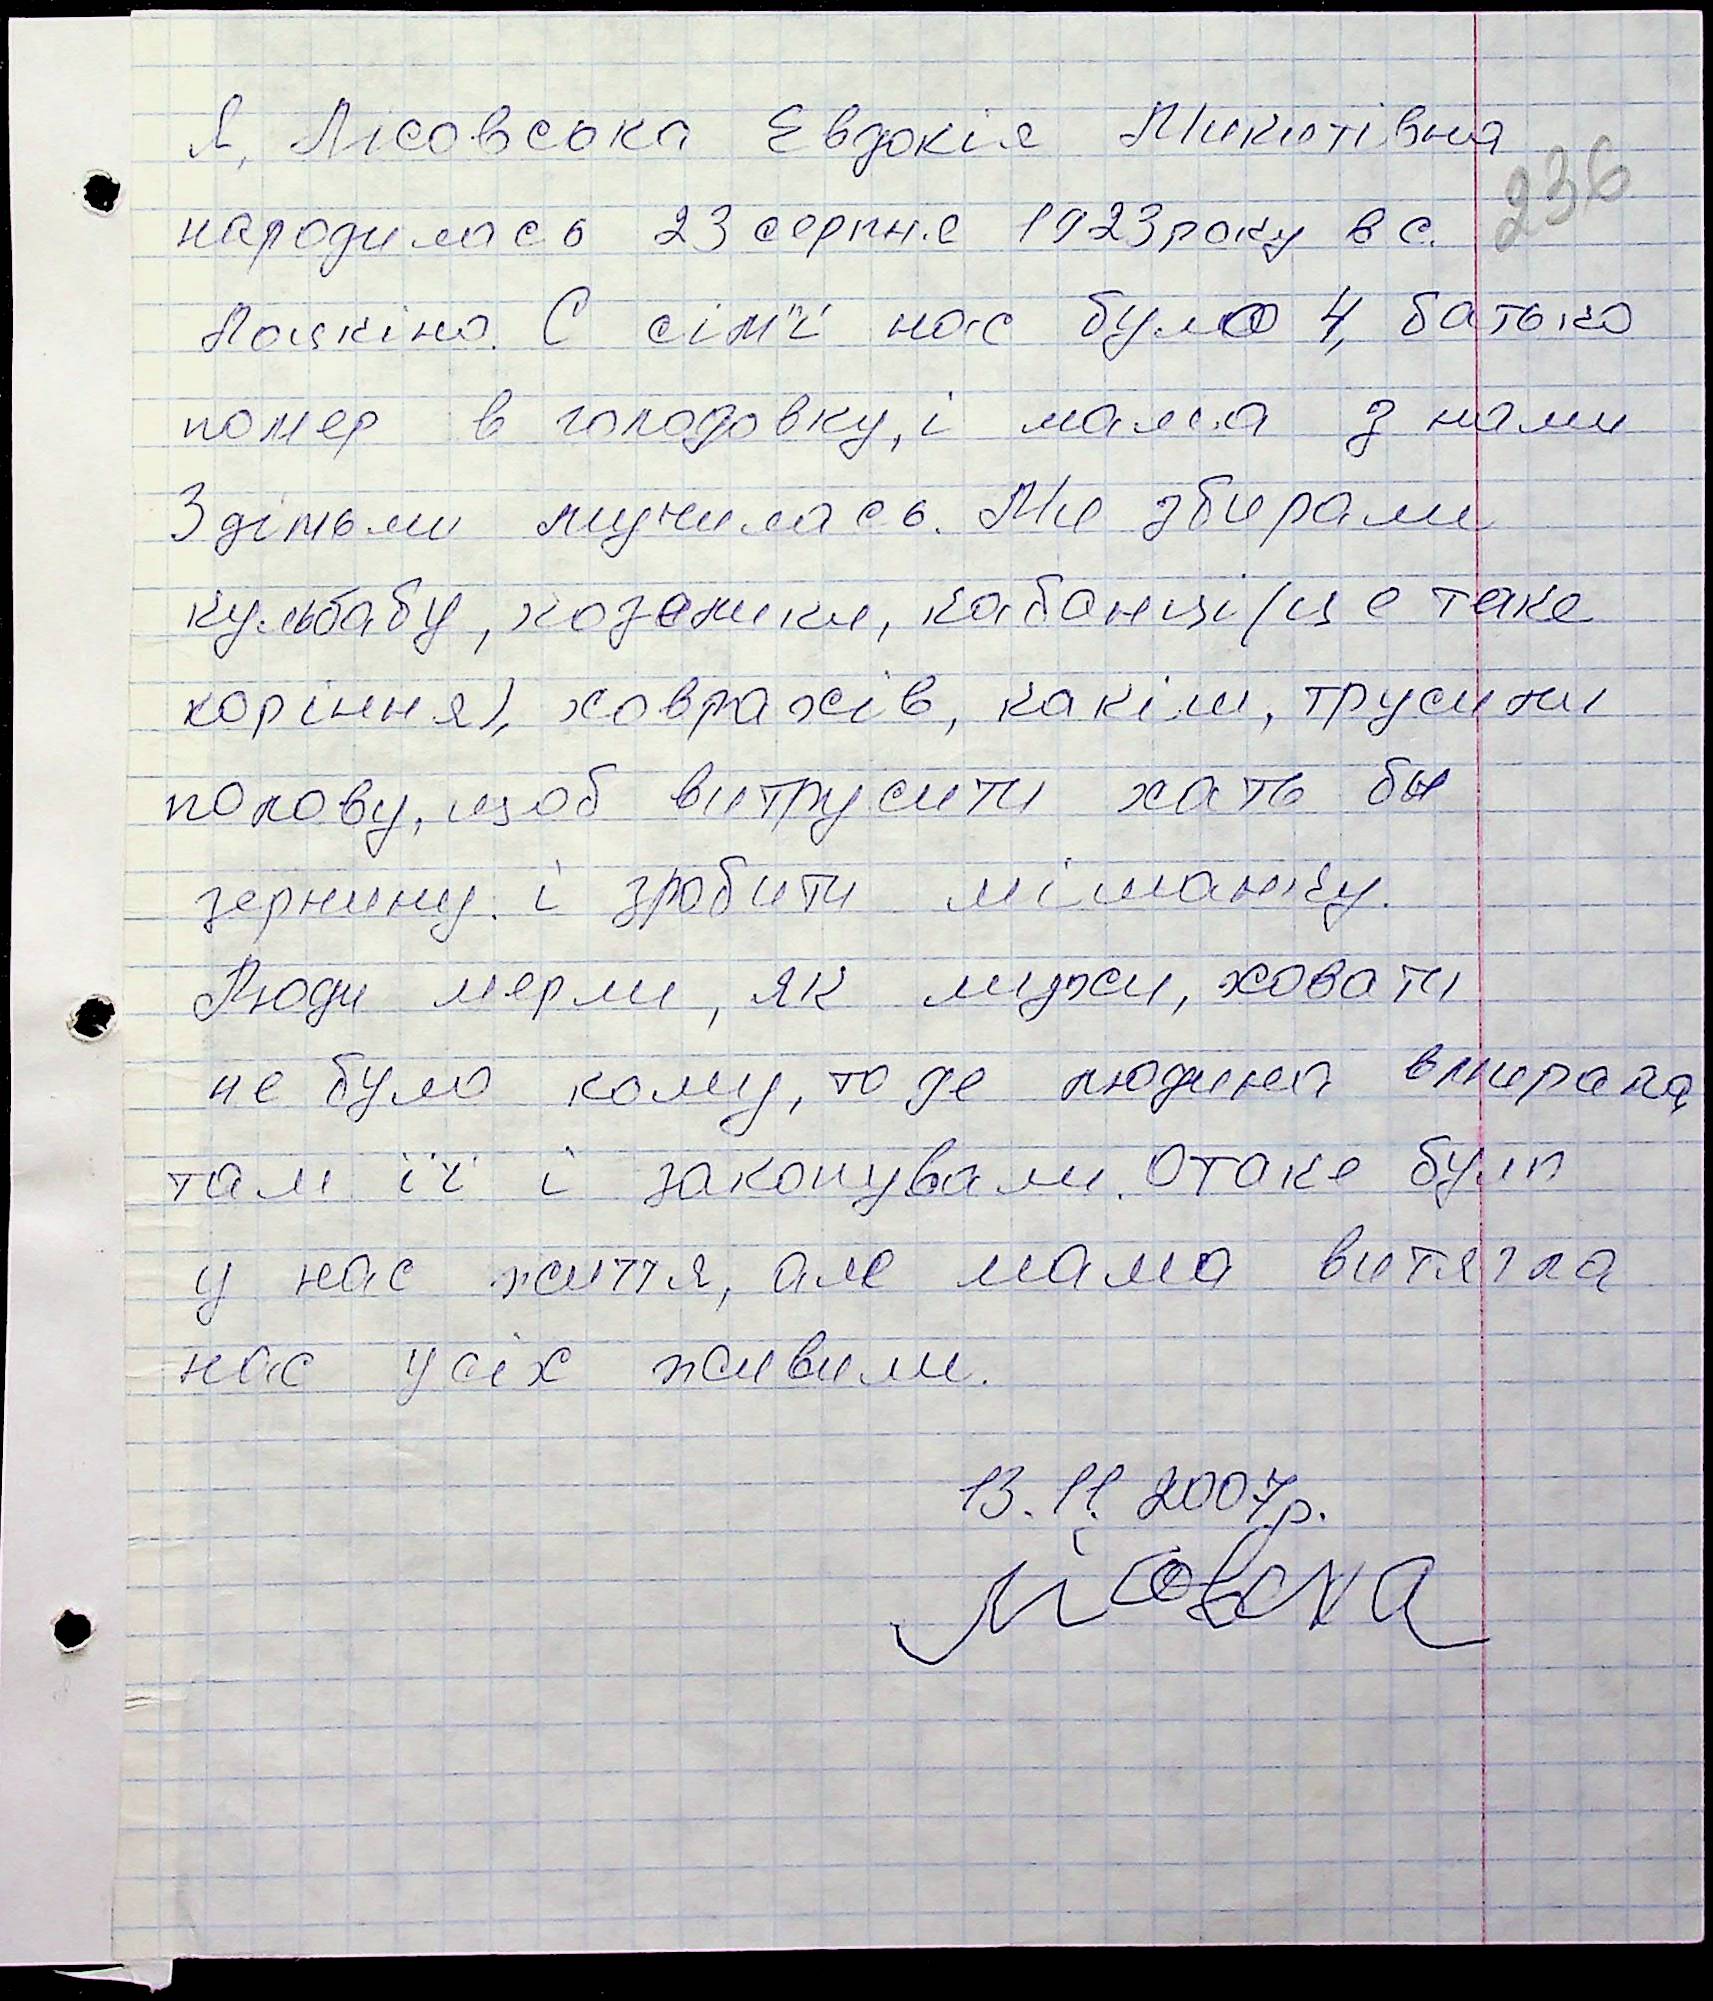 Я, Лісовська Евдокія Микитівна
236
народилась 23 серпня 1923 року в с.
Лоцкіно. С сім'ї нас було 4, батько
помер в голодовку, і мама з нами
З дітьми мучилась. Ми збирали
кульбабу, козелики, кабанці (це таке
коріння), ховрахів, качіли, трусили
полову, щоб витрусити хать бы
зернину. і зробити мішанку.
Люди мерли, як мухи, ховати
не було кому, то де людина вмирала,
там її і закопували. Отаке було
у нас життя, але мама витягла
нас усіх живими.
13.11.2007р.
Лісовска